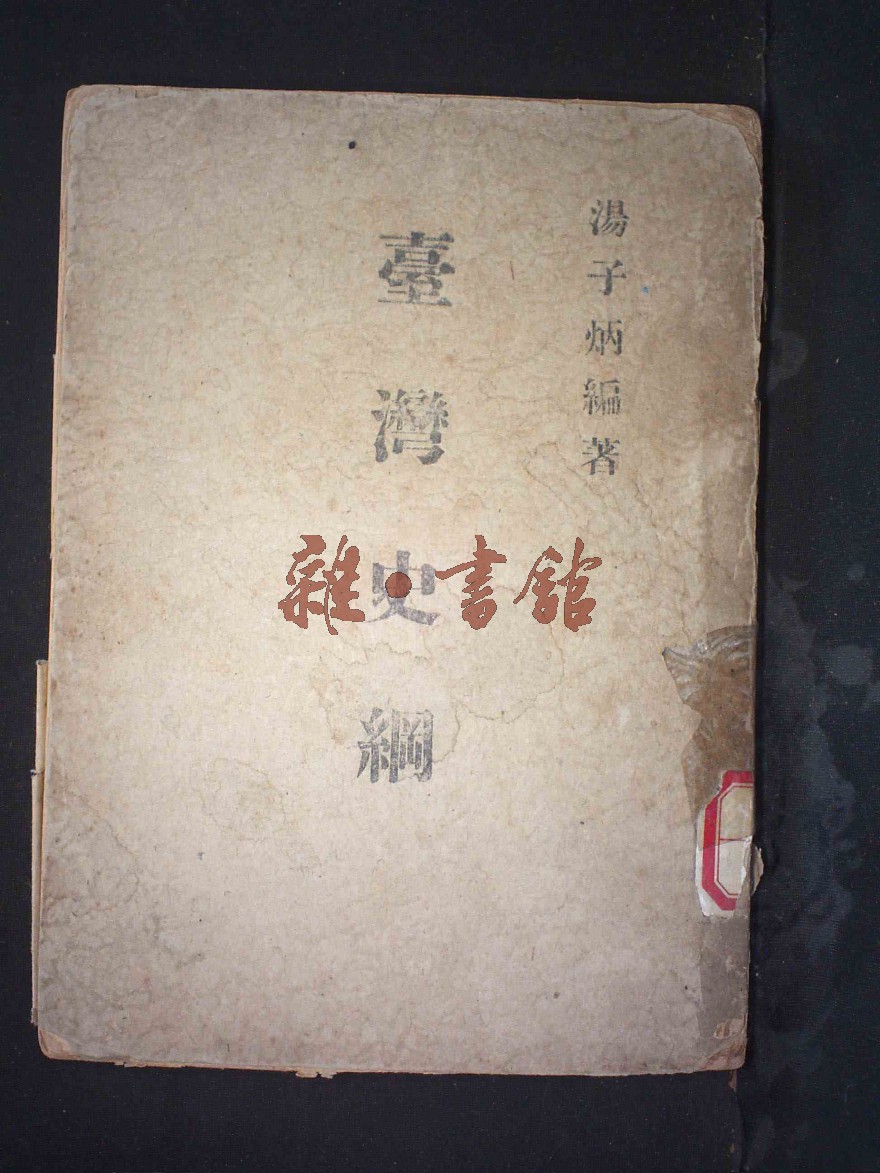 湯子炳編著
臺灣史綱
雜·書館